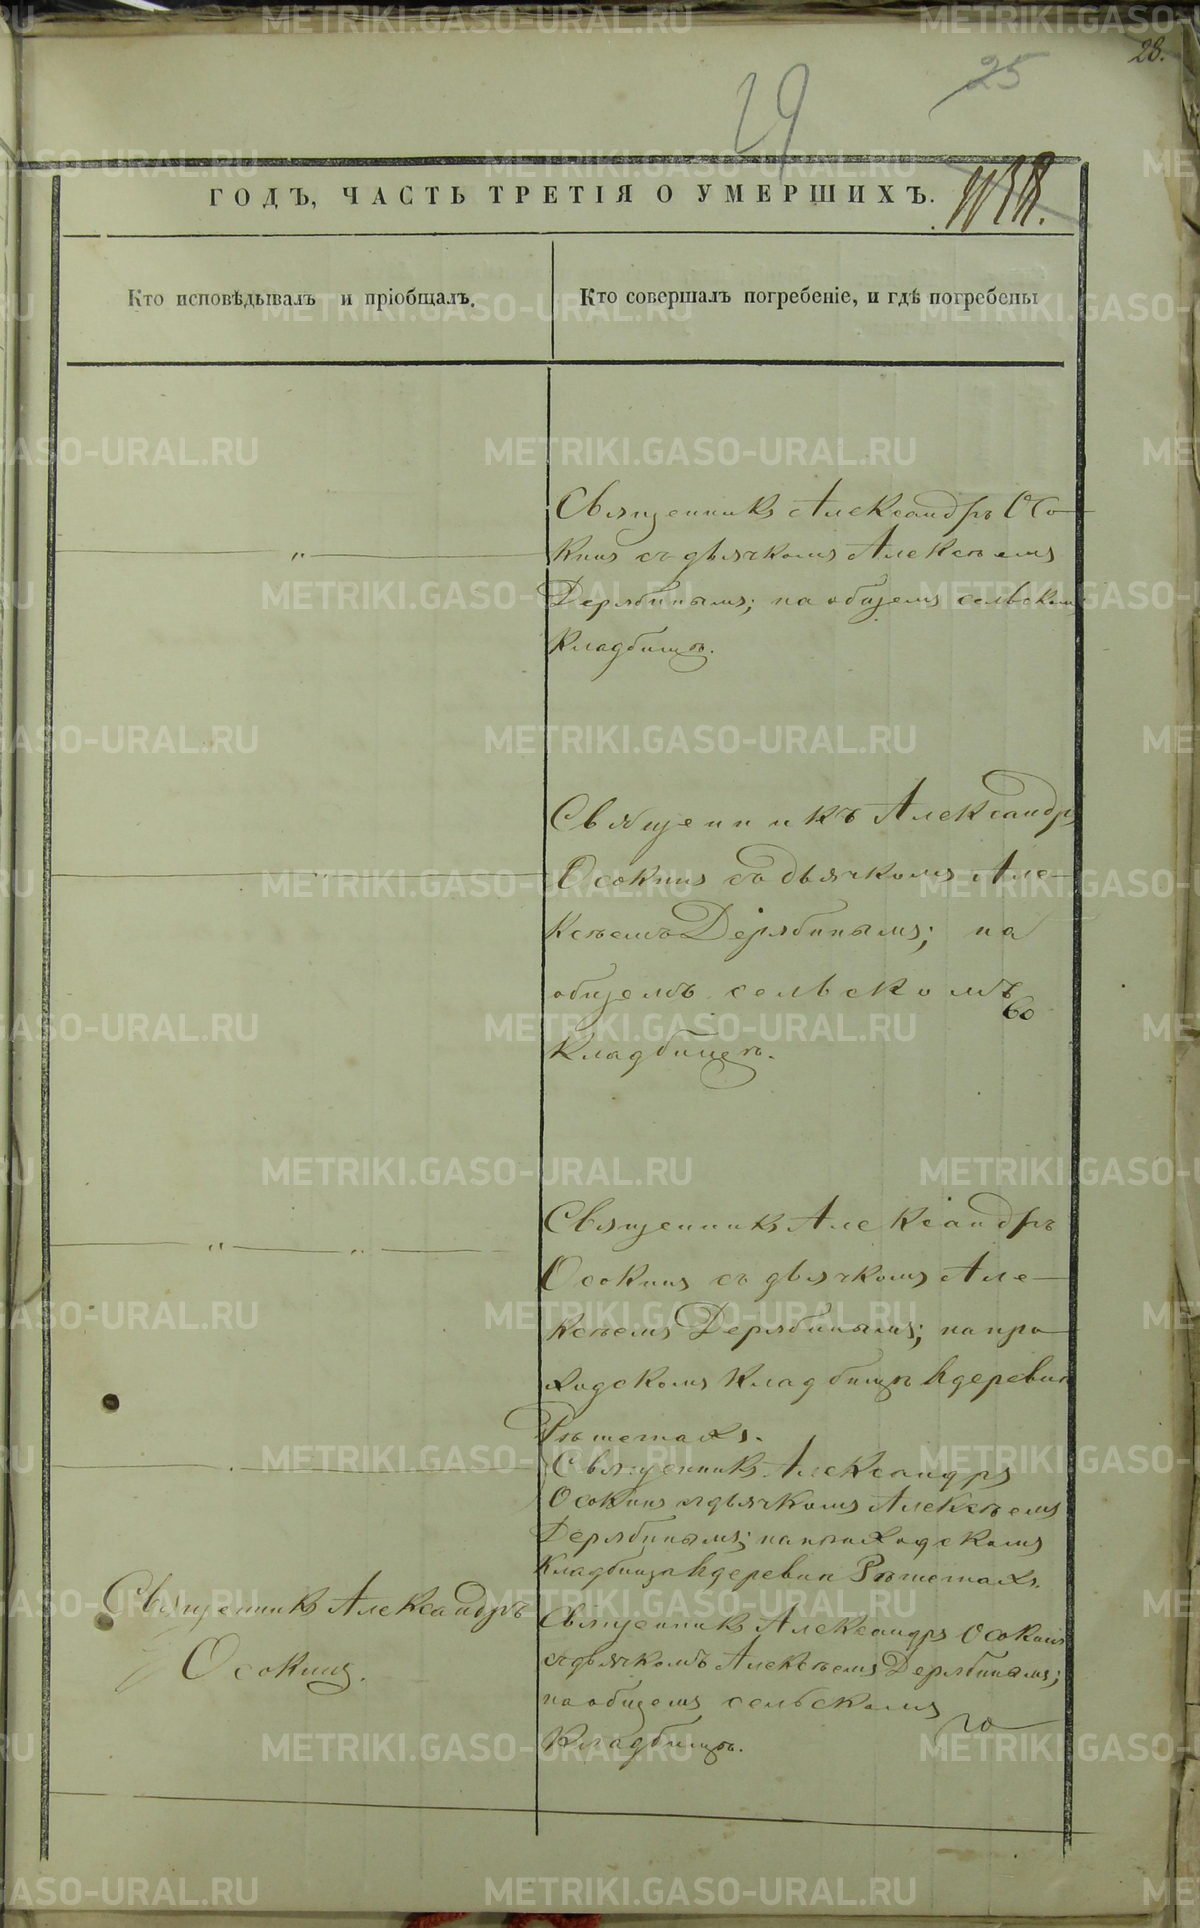 28.
25
29
ГОДЪ, ЧАСТЬ ТРЕТІЯ О УМЕРШИХЪ.
Кто исповѣдывалъ и пріобщалъ.
Кто совершалъ погребеніе, и гдѣ погребены
Священникъ Александръ Осо-
кинъ съ дьячкомъ Алексѣемъ
Дерябинымъ; на общемъ сельскомъ
кладбищѣ.
Священникъ Александръ
Осокинъ съ дьячкомъ Але-
ксѣемъ Дерябинымъ; на
общемъ сельскомъ
кладбищѣ.
Священникъ Александръ
Осокинъ съ дьячкомъ Але-
ксѣемъ Дерябинымъ; на при-
ходскомъ кладбищѣ в деревни
Рѣшетахъ.
Священникъ Александръ
Осокинъ съ дьячкомъ Алексѣемъ
Дерябинымъ; на приходскомъ
кладбищѣ в деревни Рѣшетахъ.
Священникъ Александръ
Осокинъ.
Священникъ Александръ Осокинъ
съ дьячкомъ Алексѣемъ Дерябинымъ;
на общемъ сельскомъ
кладбищѣ.
METRIKI.GASO-URAL.RU